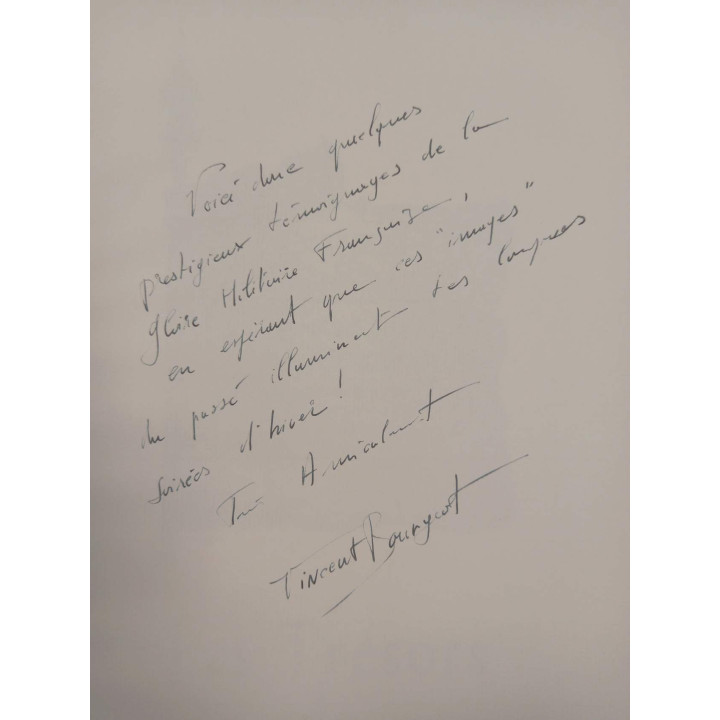 Voici donc quelques
prestigieux témoignages de la
gloire Militaire Française,
en espérant que ces "images"
du passé illuminent tes longues
soirées d'hiver !
Très Amicalement
Vincent Bourgeot